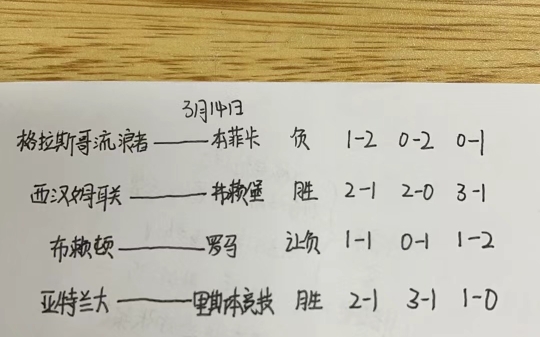 3月14日
格拉斯哥流浪者——本菲卡 负 1-2 0-2 0-1
西汉姆联——弗赖堡 胜 2-1 2-0 3-1
布赖顿——罗马 让负 1-1 0-1 1-2
亚特兰大——里斯本竞技 胜 2-1 3-1 1-0